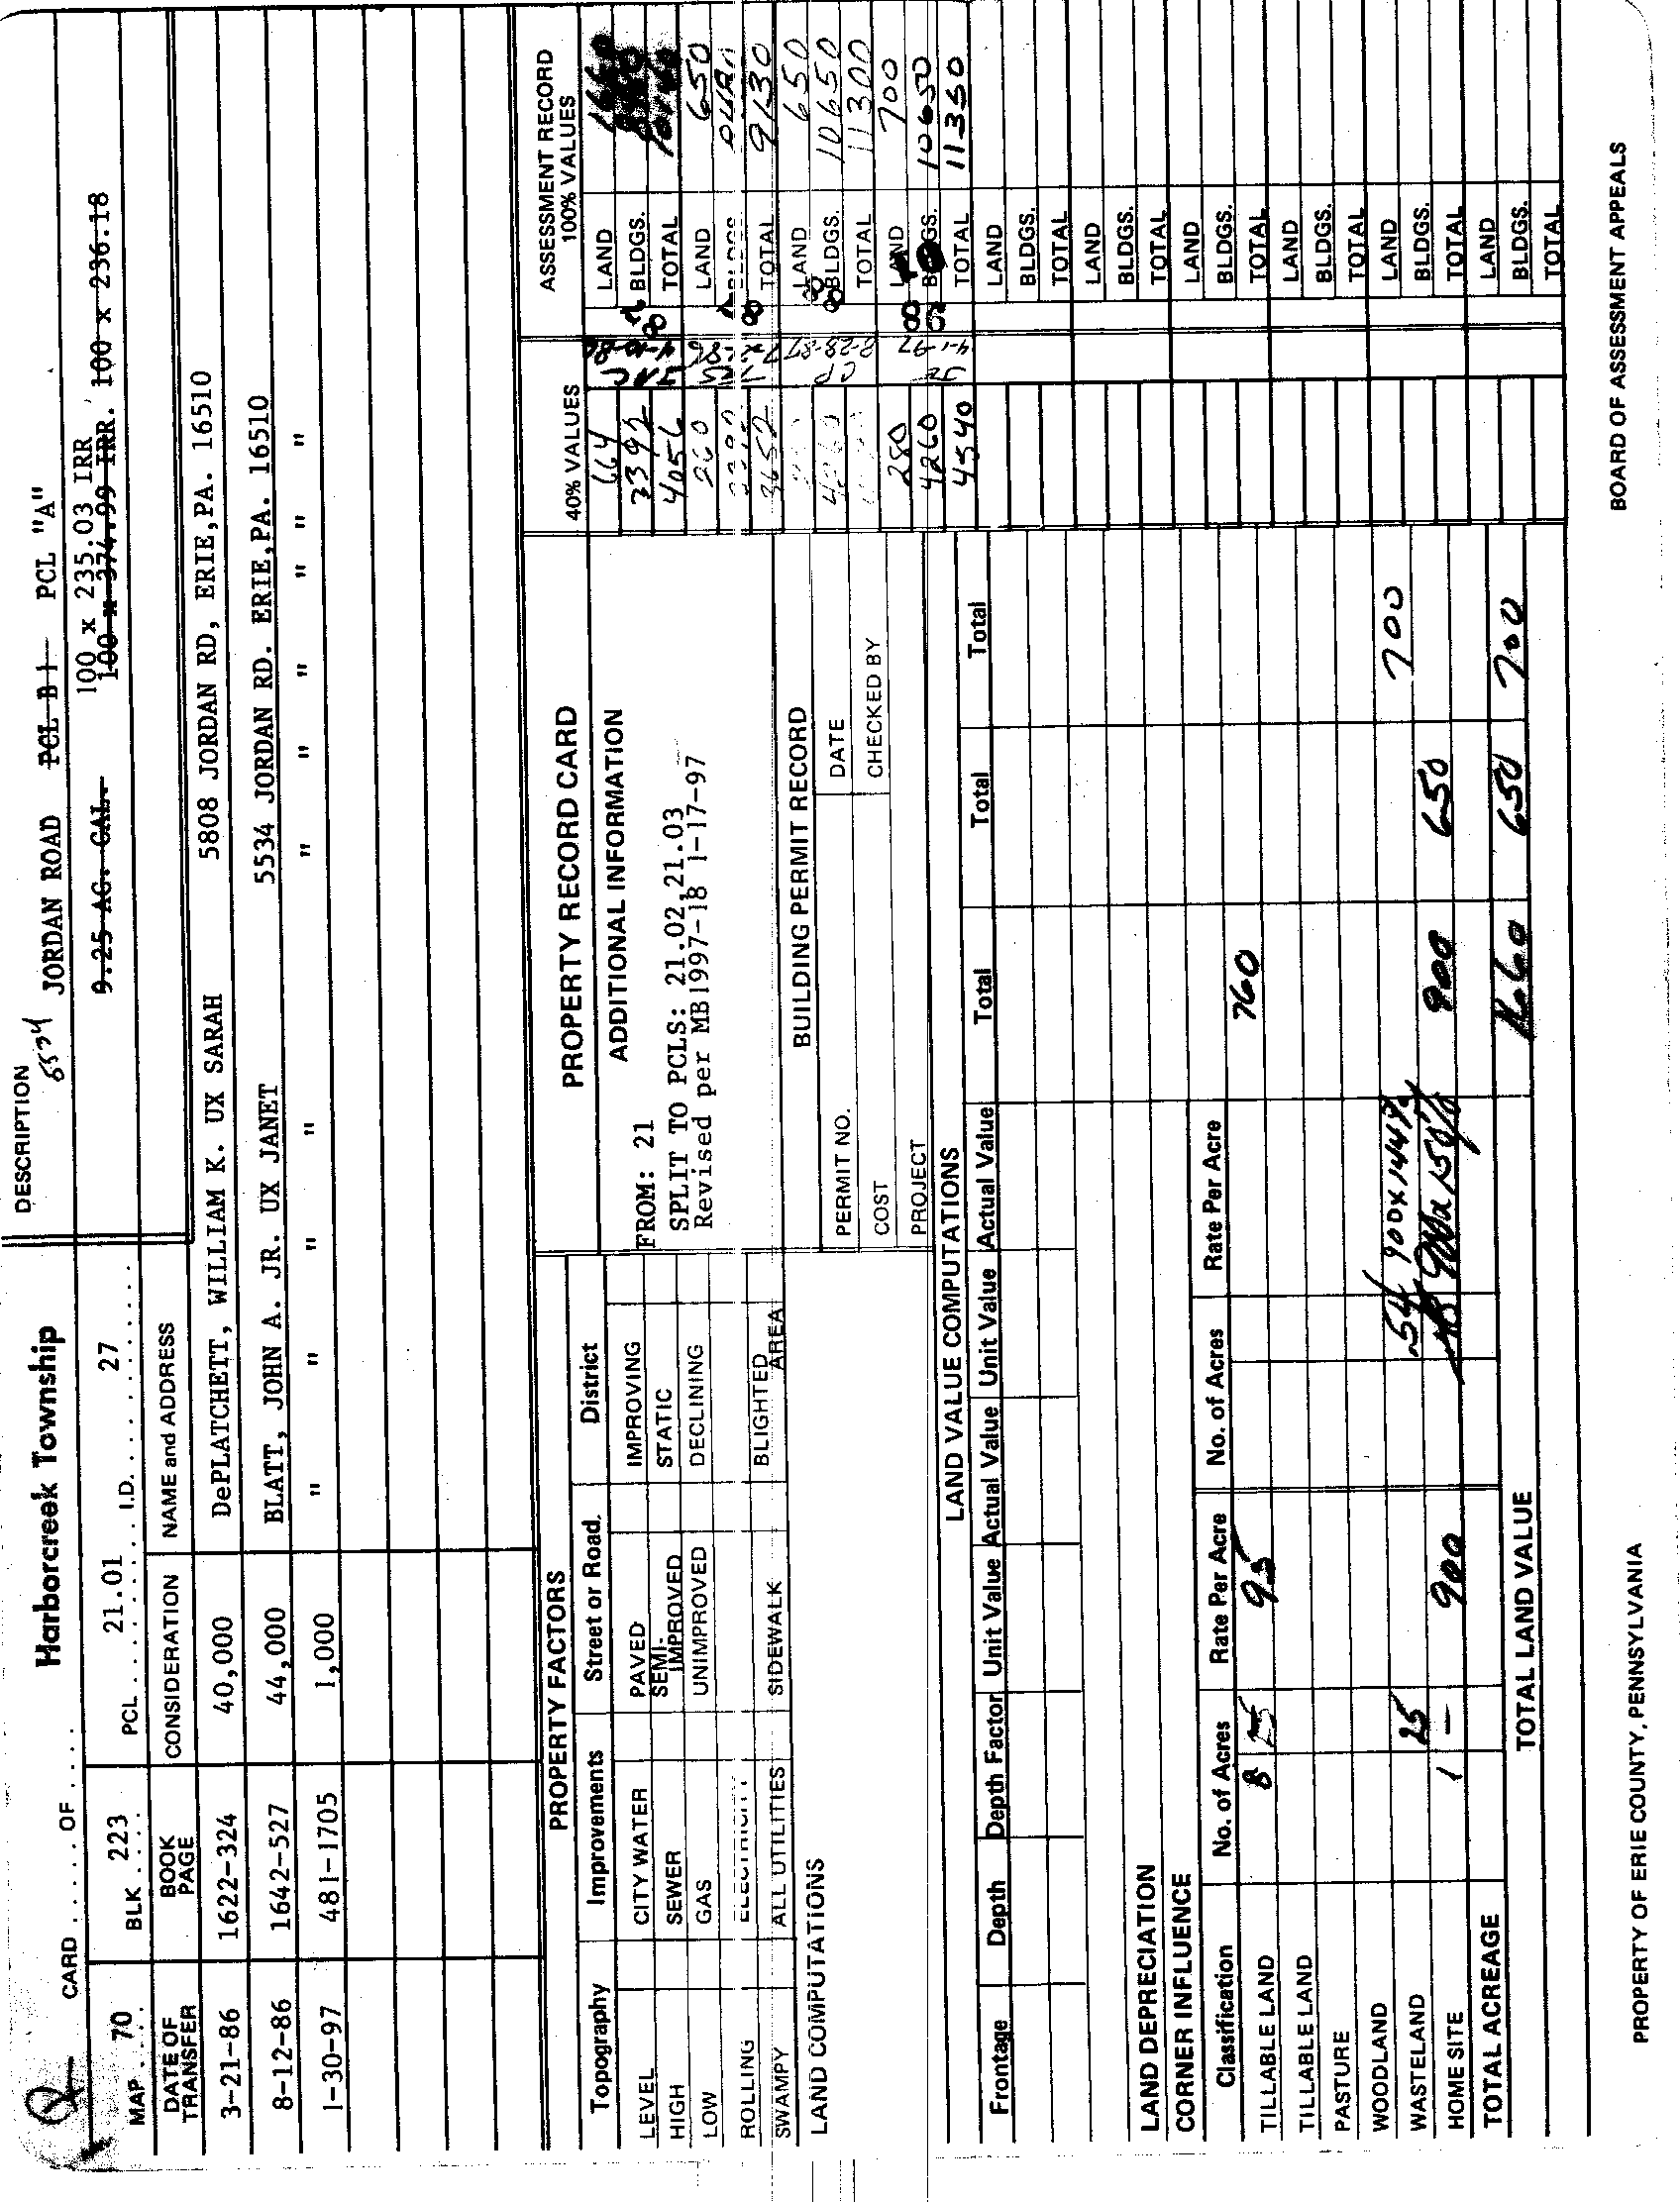 CARD ..... OF .... Harborcreek Township DESCRIPTION
MAP 70 BLK 223 PCL 21.01 I.D. 27
5534 JORDAN ROAD PCL B1 PCL "A"
100 x 235.03 IRR
9.25 AC. CAL. 100 x 374.99 IRR. 100 x 236.18
DATE OF TRANSFER BOOK PAGE CONSIDERATION NAME and ADDRESS
3-21-86 1622-324 40,000 DePLATCHETT, WILLIAM K. UX SARAH 5808 JORDAN RD, ERIE,PA. 16510
8-12-86 1642-527 44,000 BLATT, JOHN A. JR. UX JANET 5534 JORDAN RD. ERIE,PA. 16510
1-30-97 481-1705 1,000 " " " " " " " " " "
PROPERTY FACTORS
Topography Improvements Street or Road District
LEVEL CITY WATER PAVED IMPROVING
HIGH SEWER SEMI-IMPROVED STATIC
LOW GAS UNIMPROVED DECLINING
ROLLING ELECTRICITY
SWAMPY ALL UTILITIES SIDEWALK BLIGHTED AREA
LAND COMPUTATIONS
PROPERTY RECORD CARD
ADDITIONAL INFORMATION
FROM: 21
SPLIT TO PCLS: 21.02,21.03
Revised per MB1997-18 1-17-97
BUILDING PERMIT RECORD
PERMIT NO. DATE
COST CHECKED BY
PROJECT
40% VALUES ASSESSMENT RECORD 100% VALUES
664 LAND 1660
3392 BLDGS.
4056 4-10-86 TOTAL
260 LAND 650
BLDGS.
3652 TOTAL 9130
LAND 650
4260 CP 8-28-87 BLDGS. 10650
TOTAL 11300
280 LAND 700
4260 4-1-97 BLDGS. 10650
4540 TOTAL 11350
LAND
BLDGS.
TOTAL
LAND
BLDGS.
TOTAL
LAND
BLDGS.
TOTAL
LAND
BLDGS.
TOTAL
LAND
BLDGS.
TOTAL
LAND
BLDGS.
TOTAL
LAND VALUE COMPUTATIONS
Frontage Depth Depth Factor Unit Value Actual Value Unit Value Actual Value Total Total Total
LAND DEPRECIATION
CORNER INFLUENCE
Classification No. of Acres Rate Per Acre No. of Acres Rate Per Acre
TILLABLE LAND 8 95 760
TILLABLE LAND
PASTURE
WOODLAND .54 900x144% 700
WASTELAND 25 650
HOME SITE 1 - 900 900
TOTAL ACREAGE
TOTAL LAND VALUE 1660 650 700
PROPERTY OF ERIE COUNTY, PENNSYLVANIA BOARD OF ASSESSMENT APPEALS